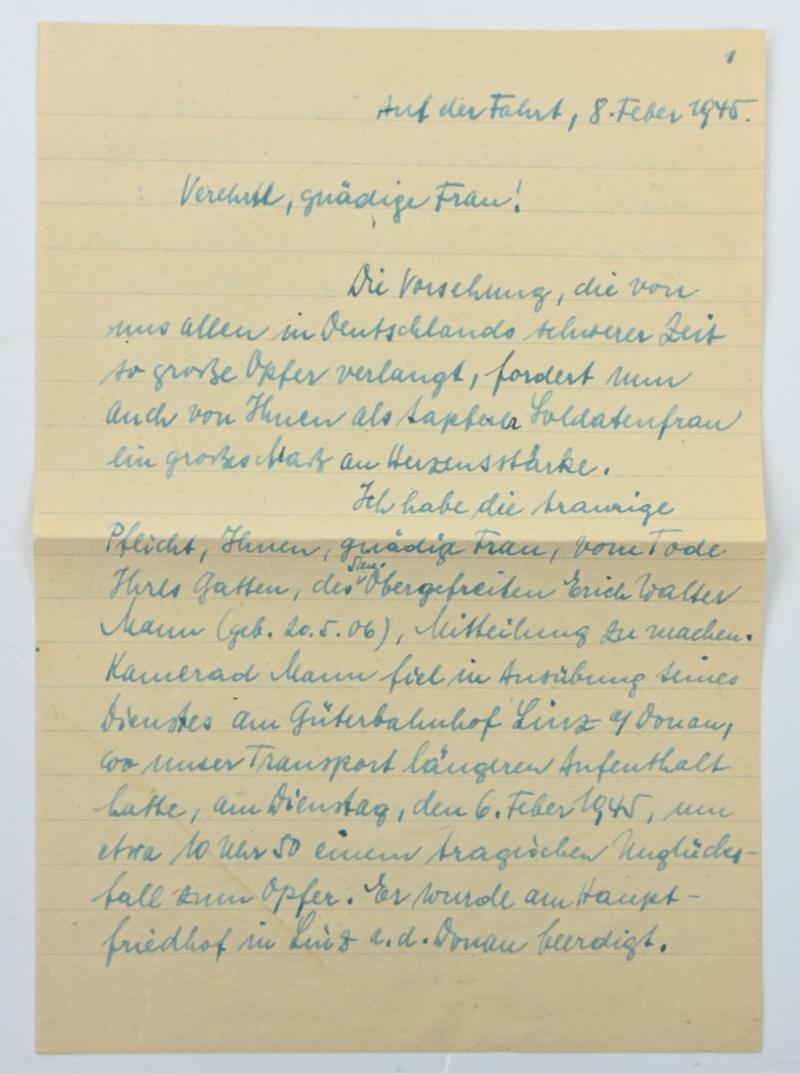 1
Auf der Fahrt, 8. Feber 1945.
Verehrte, gnädige Frau!
Die Vorsehung, die von
uns allen in Deutschlands schwerer Zeit
so große Opfer verlangt, fordert nun
auch von Ihnen als tapferer Soldatenfrau
ein großes Maß an Herzensstärke.
Ich habe die traurige
Pflicht, Ihnen, gnädige Frau, vom Tode
Ihres Gatten, des San. Obergefreiten Erich Walter
Mann (geb. 20.5.06), Mitteilung zu machen.
Kamerad Mann fiel in Ausübung seines
Dienstes am Güterbahnhof Linz a/Donau,
wo unser Transport längeren Aufenthalt
hatte, am Dienstag, den 6. Feber 1945, um
etwa 10 Uhr 50 einem tragischen Unglücks-
fall zum Opfer. Er wurde am Haupt-
friedhof in Linz a. d. Donau beerdigt.